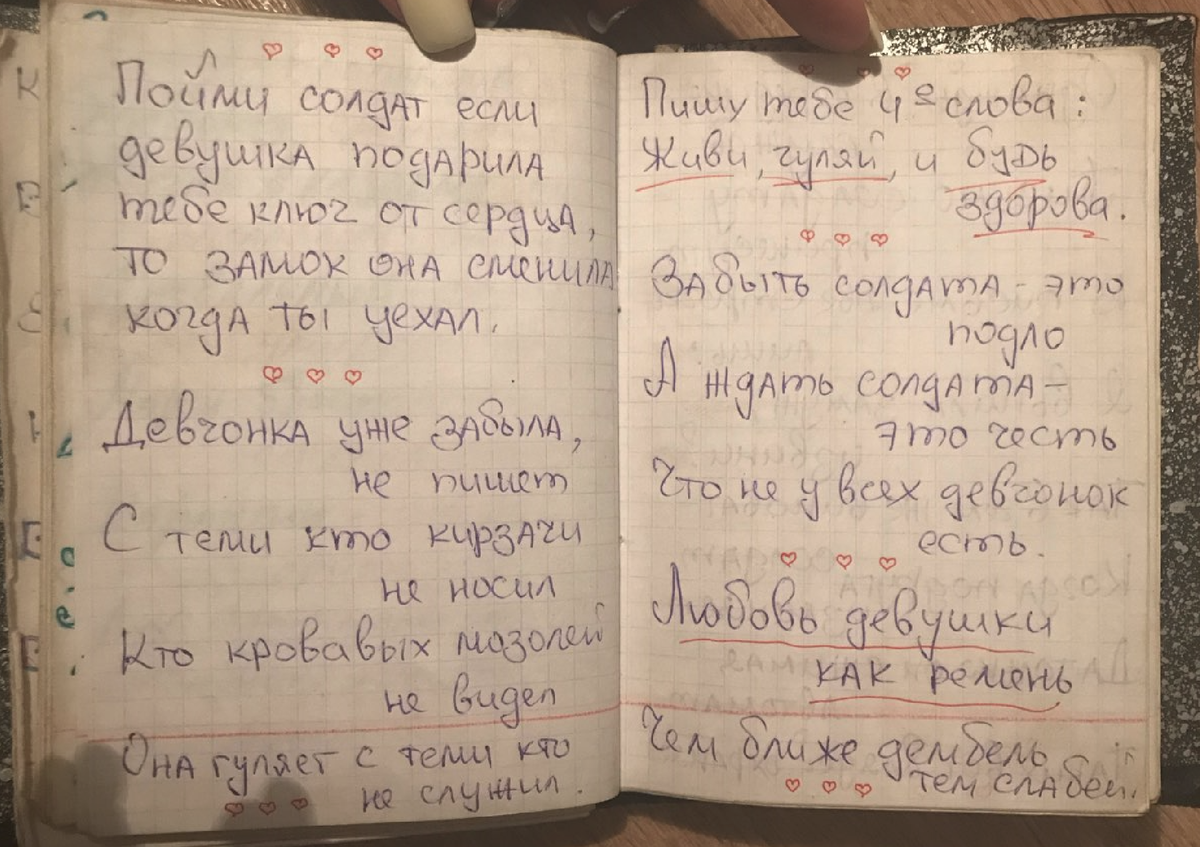 Пойми солдат если
девушка подарила
тебе ключ от сердца,
то замок она сменила
когда ты уехал.
Девчонка уже забыла,
не пишет
С теми кто кирзачи
не носил
Кто кровавых мозолей
не видел
Она гуляет с теми кто
не служил.
Пишу тебе 4е слова:
Живи, гуляй, и будь
здорова.
Забыть солдата - это
подло
А ждать солдата -
это честь
Что не у всех девчонок
есть.
Любовь девушки
как ремень
Чем ближе дембель
тем слабей.